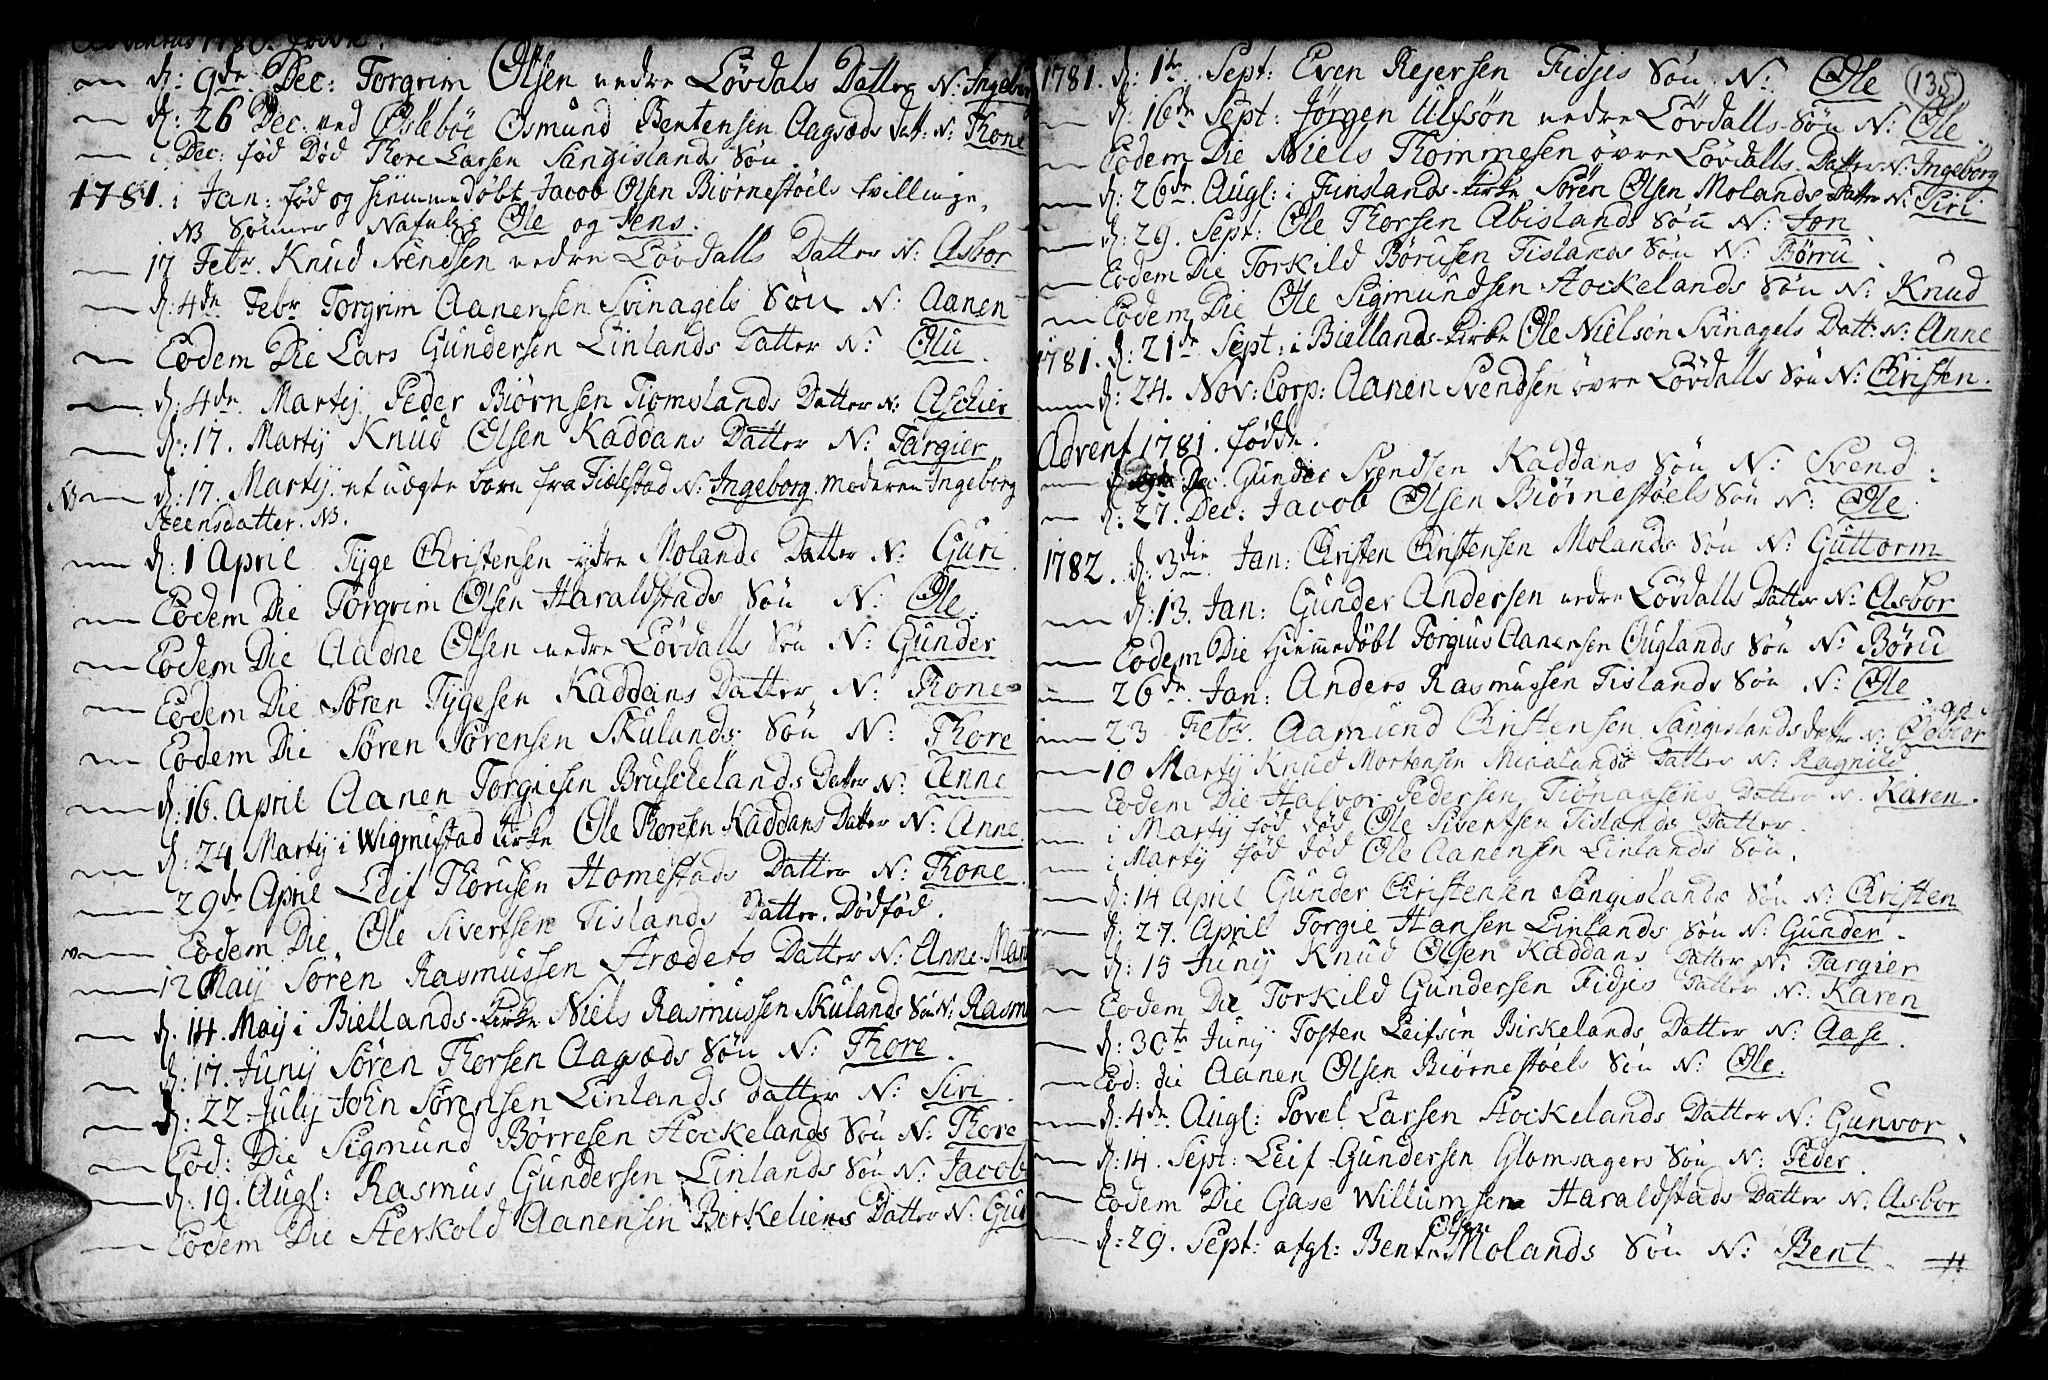 Adventus 1780. fødde.
d: 9de Dec: Torgrim Olsen nedre Lövdals Datter N: Ingebor
d: 26 Dec: ved Øslebøe Osmund Bentensen Aagsæds Datt: N: Thone
i Dec: fød Død Thore Larsen Sangislands Sön.
1781. i Jan: fød og hiemmedøbt Jacob Olsen Biørnestøels tvillinge,
NB Sønner Nafnlig Ole og Jens.
17 Febr. Knud Svendsen nedre Lövdalls Datter N: Asbor
d: 4de Febr Torgrim Aanensen Svinagels Sön N: Aanen
Eodem Die Lars Gundersen Linlands Datter N: Olu.
d: 4de Martij Peder Biørnsen Tiomslands Datter N: Aschier
d: 17. Martij Knud Olsen Kaddans Datter N: Targier
NB d: 17. Martij. et uægte barn fra Fiælestad N: Ingeborg. moderen Ingeborg
Steensdatter. NB.
d: 1 April Tyge Christensen ydre Molands Datter N: Guri.
Eodem Die Torgrim Olsen Haraldstads Sön N: Ole.
Eodem Die Aadne Olsen nedre Lövdalls Sön N: Gunder
Eodem Die Sören Tygesen Kaddans Datter N: Thone
Eodem Die Søren Sørensen Skulands Sön N: Thore
d: 16. April Aanen Torgiesen Bruskelands Datter N: Anne
d: 24 Martij i Wigmustad Kirke Ole Thoresen Kaddans Datter N: Anne.
29de April Leif Thorusen Homestads Datter N: Thone.
Eodem Die Ole Sivertsen Tislands Datter. Dödföd.
12 Maij Søren Rasmussen Strædets Datter N: Anne Mar
d. 14. Maij i Biellands Kirke Niels Rasmussen Skulands Sön N: Rasm
d: 17. Junij Sören Thorsen Aagsæds Sön N: Thore.
d: 22 July John Sørensen Linlands datter N: Siri.
Eod: Die Sigmund Børresen Stockelands Sön N: Thore
d: 19. Augl: Rasmus Gundersen Linlands Sön N: Jacob
Eodem Die Sterkold Aanensen Birkeliens Datter N: Gu
135
1781. d: 1te Sept: Even Rejersen Fidjes Sön N: Ole
d: 16de Sept: Jørgen Ulfsön nedre Lövdalls Sön N: Ole.
Eodem Die Niels Thommesen øvre Lövdalls Datter N: Ingeborg
d: 26de Augl: i Finslands Kirke Sören Olsen Molands Datter N: Siri
d: 29. Sept: Ole Thorsen Abislands Sön N: Jon
Eodem Die Torkild Børusen Tislands Sön N: Børru.
Eodem Die Ole Sigmundsen Stockelands Sön N: Knud
1781. d: 21de Sept: i Biellands Kirke Ole Nielsön Svinagels Datt: N: Anne
d: 24. Nov: Corp: Aanen Svendsen övre Lövdalls Sön N: Christen.
Advent 1781. fødde.
Dec: Gunder Svendsen Kaddans Sön N: Svend.
d: 27. Dec: Jacob Olsen Biørnestøels Sön N: Ole.
1782. d: 3die Jan: Christen Christensen Molands Sön N: Guttorm
d: 13. Jan: Gunder Andersen nedre Lövdalls Datter N: Asbor
Eodem Die hiemmedöbt Torgius Aanensen Øuglands Sön N: Børu
26de Jan: Anders Rasmussen Tislands Sön N: Ole
23 Febr. Aamund Christensen Sangislands datter N: Gubior
10 Martij Knud Mortensen Mieglands Datter N: Ragnild
Eodem Die Halvor Pedersen Tiønaasens Datter N. Karen.
i Martij fød död Ole Sivertsen Tislands Datter.
i Martij föd död Ole Aanensen Linlands Sön.
d: 14 April Gunder Christensen Sangislands Sön N: Christen
d: 27. April Torgie Hansen Linlands Sön N: Gunder.
d: 15 Junij Knud Olsen Kaddans Datter N: Targier
Eodem Die Torkild Gundersen Fidjes Datter N: Karen
d: 30te Junij Tosten Leifsön Birkelands Datter N: Aase.
Eod: die Aanen Olsen Biørnestøels Sön N: Ole.
d: 4de Augl: Povel Larsen Stockelands Datter N: Gunvor.
d: 14. Sept: Leif Gundersen Glomsagers Sön N: Peder.
Eodem Die Gase Willumsen Haraldstads Datter N. Asbor
d: 29. Sept: afgl: Bent Olsen Molands Sön N: Bent.